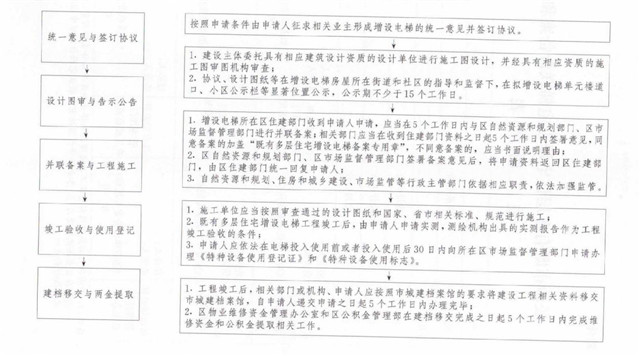 统一意见与签订协议
按照申请条件由申请人征求相关业主形成增设电梯的统一意见并签订协议。
设计图审与告示公告
1. 建设主体委托具有相应建筑设计资质的设计单位进行施工图设计，并经具有相应资质的施
工图审图机构审查；
2. 协议、设计图纸等在增设电梯房屋所在街道和社区的指导和监督下，在拟增设电梯单元楼道
口、小区公示栏等显著位置公示，公示期不少于15个工作日。
并联备案与工程施工
1. 增设电梯所在区住建部门收到申请人申请，应当在5个工作日内与区自然资源和规划部门、区市
场监督管理部门进行并联备案；相关部门应当在收到住建部门资料之日起5个工作日内签署意见，同
意备案的加盖“既有多层住宅增设电梯备案专用章”，不同意备案的，应当书面说明理由；
2. 区自然资源和规划部门、区市场监督管理部门签署备案意见后，将申请资料返回区住建部
门，由区住建部门统一回复申请人；
3. 自然资源和规划、住房和城乡建设、市场监管等行政主管部门依据相应职责，依法加强监管。
竣工验收与使用登记
1. 施工单位应当按照审查通过的设计图纸和国家、省市相关标准、规范进行施工；
2. 既有多层住宅增设电梯工程竣工后，由申请人申请实测，测绘机构出具的实测报告作为工程
竣工验收的条件；
3. 申请人应依法在电梯投入使用前或者投入使用后30日内向所在区市场监督管理部门申请办
理《特种设备使用登记证》和《特种设备使用标志》。
建档移交与两金提取
1. 工程竣工后，相关部门或机构、申请人应按照市城建档案馆的要求将建设工程相关资料移交
市城建档案馆，自申请人递交申请之日起5个工作日内办理完毕；
2. 区物业维修资金管理办公室和区公积金管理部在建档移交完成之日起5个工作日内完成维
修资金和公积金提取相关工作。